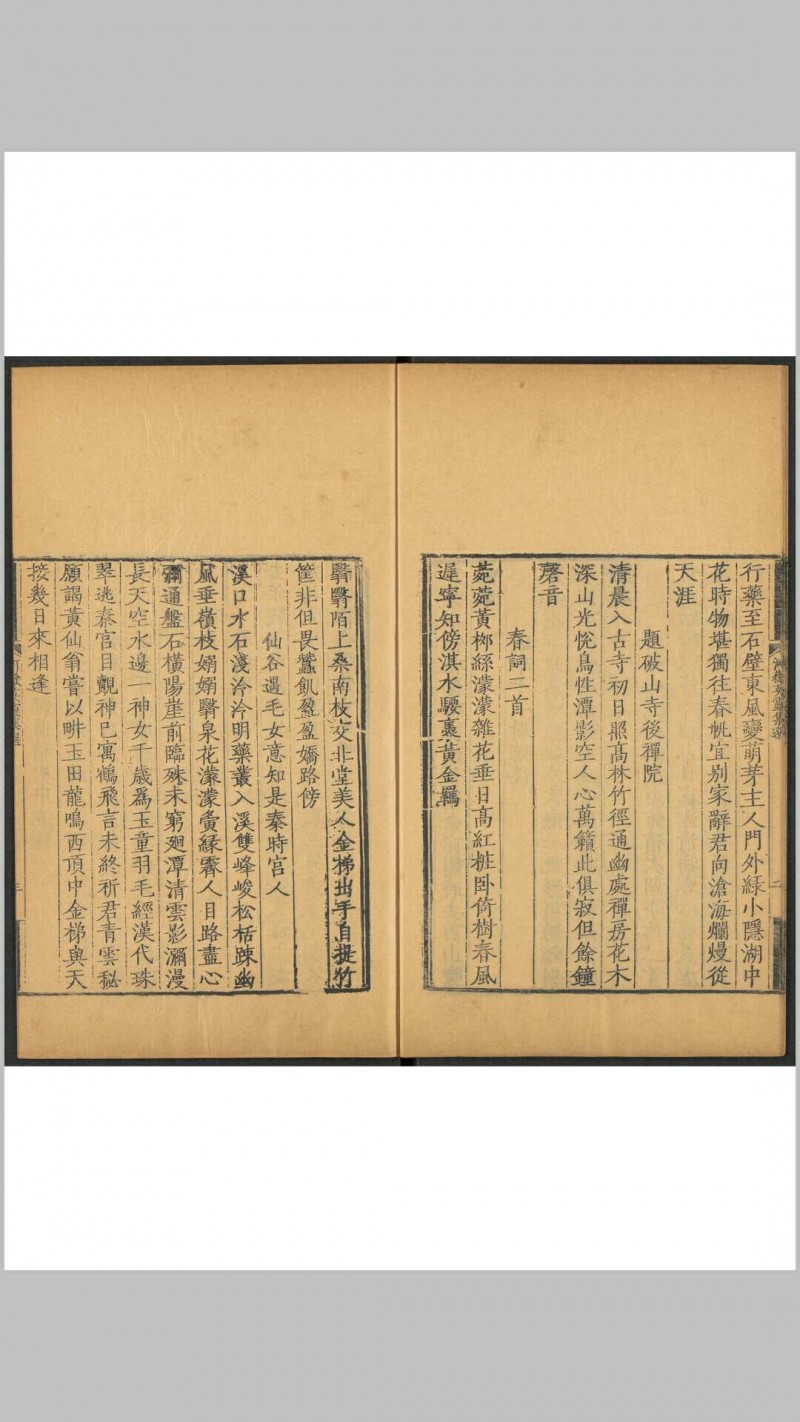 行藥至石壁東風變萌芽主人門外緑小隱湖中
花時物堪獨往春帆宜别家辭君向滄海爛熳從
天涯
題破山寺後禪院
清晨入古寺初日照髙林竹徑通幽處禪房花木
深山光悅鳥性潭影空人心萬籟此俱寂但餘鐘
磬音
春詞二首
菀菀黃栁絲濛濛雜花垂日髙紅粧卧倚樹春風
遲寧知傍淇水騕褭黃金羈
翳翳陌上桑南枝交北堂美人金梯出手自提竹
筐非但畏蠶飢盈盈嬌路傍
仙谷遇毛女意知是秦時宫人
溪口水石淺泠泠明藥叢入溪雙峰峻松栝踈幽
風垂嶺枝嫋嫋翳泉花濛濛夤緣霽人目路盡心
彌通盤石横陽崖前臨殊未窮廻潭清雲影瀰漫
長天空水邊一神女千歳爲玉童羽毛經漢代珠
翠逃秦宫目覿神已寓鶴飛言未終祈君青雲秘
願謁黃仙翁嘗以畊玉田龍鳴西頂中金梯與天
接幾日來相逢
二